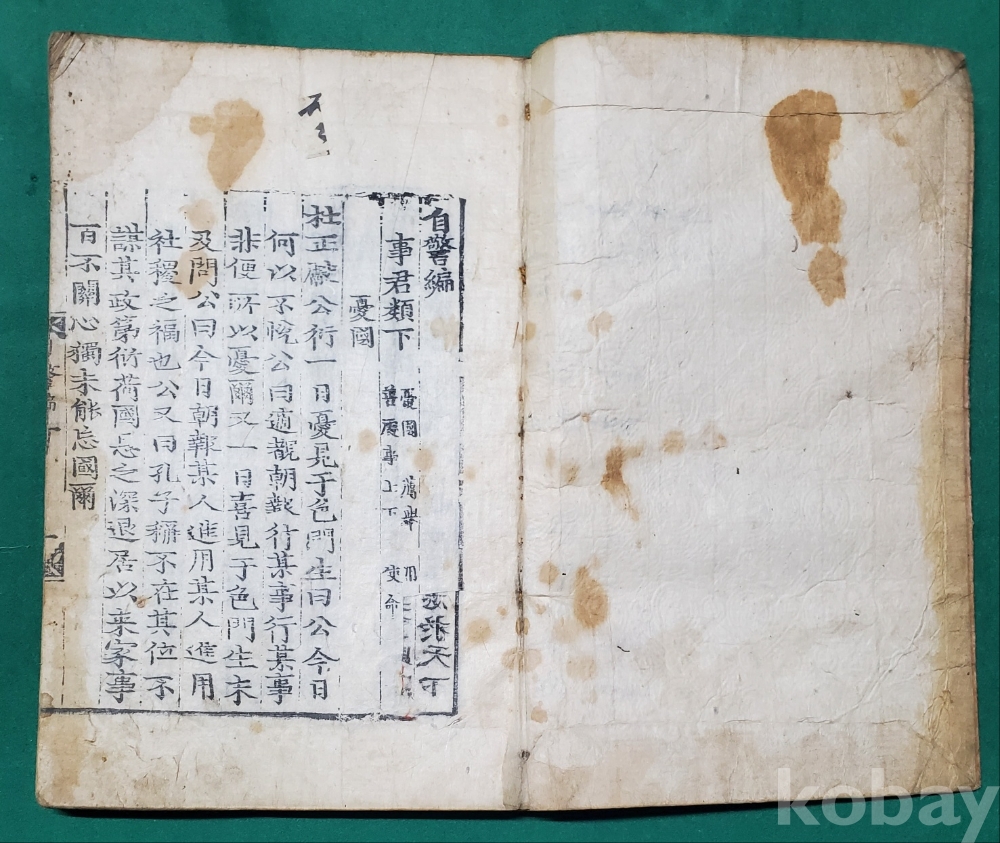 自警編
事君類下
憂國 薦舉 用
善處事上下 使命
憂國
杜正獻公衍一日憂見于色門生曰公今日
何以不悅公曰適覩朝報行某事行某事
非便所以憂爾又一日喜見于色門生未
及問公曰今日朝報某人進用某人進用
社稷之福也公又曰孔子稱不在其位不
謀其政第衍荷國恩之深退居以來家事
百不關心獨未能忘國爾
kobay